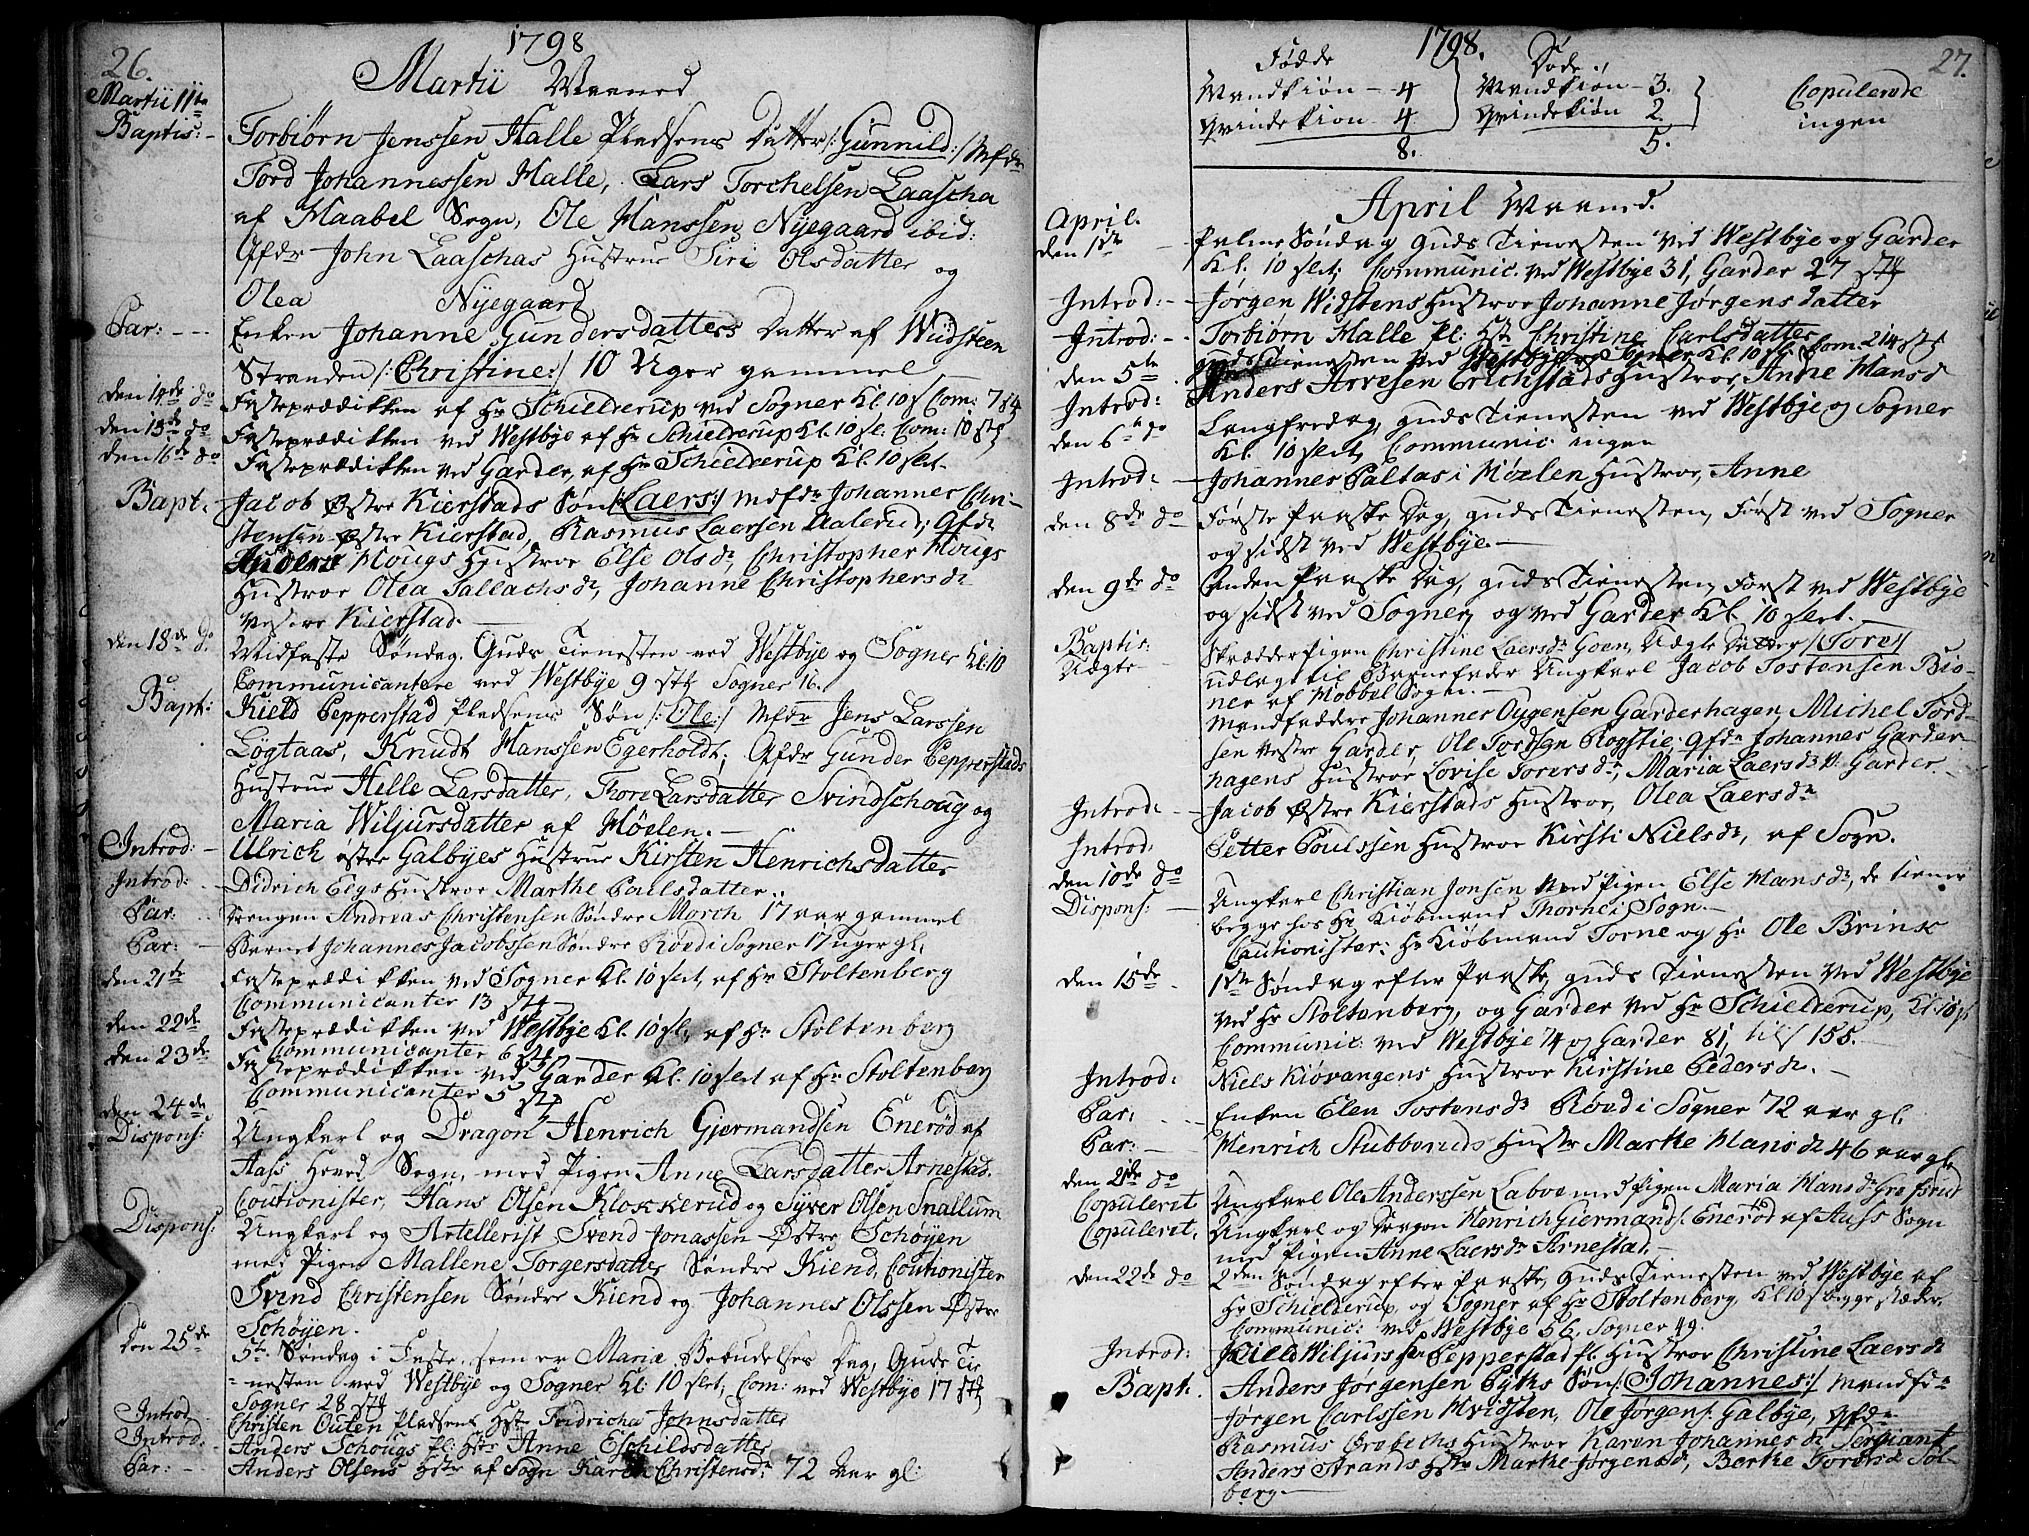 26.
1798
Martii Maaned
Martii 11te
Baptis: -
Torbiørn Jenssen Halle Pladsens Datter /:Gunnild:/ Mfdr
Tord Johannessen Halle, Lars Torchelsen Laascha
af Haabel Sogn, Ole Hanssen Nyegaard ibid:
Qfdr John Laaschas Hustrue Siri Olsdatter og
Olea Nyegaard
Par: - - -
Enken Johanne Gundersdatters Datter af Widsteen
Stranden /:Christine:/ 10 Uger gammel
den 14de do
Fasteprædikken af Hr Schielderup ved Sogner Kl. 10 s Com: 7 stk
den 15de do
Fasteprædikken ved Westbye af Hr Schielderup Kl. 10 sl. Com: 10 stk
den 16de do
Fasteprædikken ved Garder, af Hr Schielderup Kl. 10 slet.
Bapt:
Jacob Østre Kierstads Søn /:Laers:/ Mdfdr Johannes Chri-
stensen Østre Kierstad, Rasmus Laersen Aalerud; Qfdr
Anders Hougs Hustroe Else Olsdr, Christopher Hougs
Hustroe Olea Tallachsdr, Johanne Christophersdr
Vestre Kierstad.
den 18de do
Midfaste Søndag. Guds Tienesten ved Westbye og Sogner Kl: 10
Communicantere ved Westbye 9 stk Sogner 16.
Bapt:
Kield Pepperstad Pladsens Søn /:Ole:/ Mfdr Jens Larssen
Løgtaas, Knudt Hanssen Egerholdt; Qfdr Gunder Pepperstads
Hustrue Helle Larsdatter, Thore Larsdatter Svindschoug og
Maria Wiljursdatter af Høelen. -
Introd: -
Ulrich østre Galbyes Hustrue Kirsten Henrichsdatter
Introd: -
Didrich Eegs Hustroe Marthe Paulsdatter.
Par: -
Drengen Andreas Christensen Søndre Morch 17 aar gammel
Par: -
Barnet Johannes Jacobssen Søndre Røed i Sogner 17 uger gl.
den 21te
Fasteprædikken ved Sogner Kl. 10 slet, af Hr Stoltenberg
Communicanter 13 stk
den 22de
Fasteprædikken ved Westbye Kl. 10 sl. af Hr Stoltenberg
Communicanter 6 stk
den 23de
Fasteprædikken ved Garder Kl. 10 slet af Hr Stoltenberg
Communicanter 5 stk
den 24de
Dispons:
Ungkarl og Dragon Henrich Gjermandsen Enerød af
Aass Hoved Sogn, med Pigen Anne Larsdatter Arnestad.
Coutionister, Hans Olsen Klokkerud og Syver Olsen Snallum
Dispons:
Ungkarl og Artellerist Svend Jonassen Østre Schøyen
med Pigen Mallene Torgersdatter Søndre Kiend, Coutionister
Svend Christensen Søndre Kiend og Johannes Olssen Østre
Schøyen.
Den 25de
5te Søndag i Faste, som er Mariæ Bebudelses Dag, Guds Tie
nesten ved Westbye og Sogner Kl: 10 slet, Com: ved Westbye 17 stk
Sogner 28 stk
Introd
Christen Outen Pladsens Hstr Fridricha Johnsdatter
Introd:
Anders Schougs pl: Hstr Anne Eschildsdatter
Par: -
Anders Olsens Hstr af Sogn Karen Christensdr 72 Aar gl:
27.
1798.
Fødde
Døde.
Mandkiøn - 4
Mandkiøn - 3.
Copulerede
Qvindekiøn 4
Qvindekiøn 2.
ingen
8.
5.
April Maaned.
April.
den 1te
Palme Søndag Guds Tienesten ved Westbye og Garder
Kl. 10 slet; Communic. ved Westbye 31, Garder 27 stk
Introd: -
Jørgen Widstens Hustroe Johanne Jørgensdatter
Introd: -
Torbiørn Halle pl: Hstr Christine Carlsdatter
den 5te
Guds Tienesten ved Westbye og Sogner Kl. 10 sl. Com. 214 stk
Introd:
Anders Arvesen Erichstads Hustroe, Anne Hansdr
den 6te do
Langfredag, Guds Tienesten ved Westbye og Sogner
Kl. 10 slet, Communic. ingen
Introd:
Johannes Paltas i Høelen Hustroe, Anne
den 8de do
Første Paaske Dag, Guds Tienesten, Først ved Sogner
og sidst ved Westbye. -
den 9de do
Anden Paaske Dag, Guds Tienesten, Først ved Westbye
og sidst ved Sogner, og ved Garder Kl. 10 slet.
Baptis:
Uægte
Skrædderpigen Christine Laersdr Goen, Uægte Datter /:Tore:/
udlagt til Barnefader Ungkarl Jacob Tostensen Bio-
ner af Hobbel Sogn. -
Mandfaddere Johannes Oygensen Garderhagen, Michel Tord-
sen vestre Garder, Ole Tordsen Rogstie; Qfdr Johannes Garder
hagens Hustroe Lovise Torersdr, Maria Laersdr v: Garder
Introd:
Jacob Østre Kierstads Hustroe, Olea Laersdr
Introd:
Petter Poulssen Hustroe Kirsti Nielsdr, af Sogn.
den 10de do
Dispons:
Ungkarl Christian Jonsen med Pigen Else Hansdr, de tiener
begge hos Hr Kiøbmand Thorne i Sogn. -
Cautionister: Hr Kiøbmand Torne og Hr Ole Brink
den 15de
1ste Søndag efter Paaske, Guds Tienesten ved Westbye
ved Hr Stoltenberg, og Garder ved Hr Schielderup, Kl: 10 sl
Communic: ved Westbye 74 og Garder 81, tils 155.
Introd:
Niels Kiøvangens Hustroe Kirstine Pedersdr. -
Par: -
Enken Elen Tostensdr Røed i Sogner 72 aar gl.
Par: -
Henrich Stubberuds Hustr Marthe Hansdr 46 aar gl.
den 21de do
Copuleret
Ungkarl Ole Anderssen Laboe med Pigen Maria Hansdr
Copuleret.
Ungkarl og Dragon Henrich Giermands. Enerød af Aass Sogn
med Pigen Anne Laersdr Arnestad. -
den 22de do
2den Søndag efter Paaske, Guds Tienesten ved Westbye af
Hr Schielderup, og Sogner af Hr Stoltenberg, Kl 10 s begge stæder.
Communic: ved Westbye 56, Sogner 49.
Introd:
Kield Wiljurs Pepperstad pl. Hustroe Christine Laersdr
Bapt.
Anders Jørgensen Pyths Søn /:Johannes:/ Mandfdr
Jørgen Carlssen Hvidsten, Ole Jørgens. Galbye, Qfdr
Rasmus Grobechs Hustroe Karen Johannesdr, Sergiant
Anders Strands Hstr Marthe Jørgensdr, Berthe Torersdr Sol-
berg. -